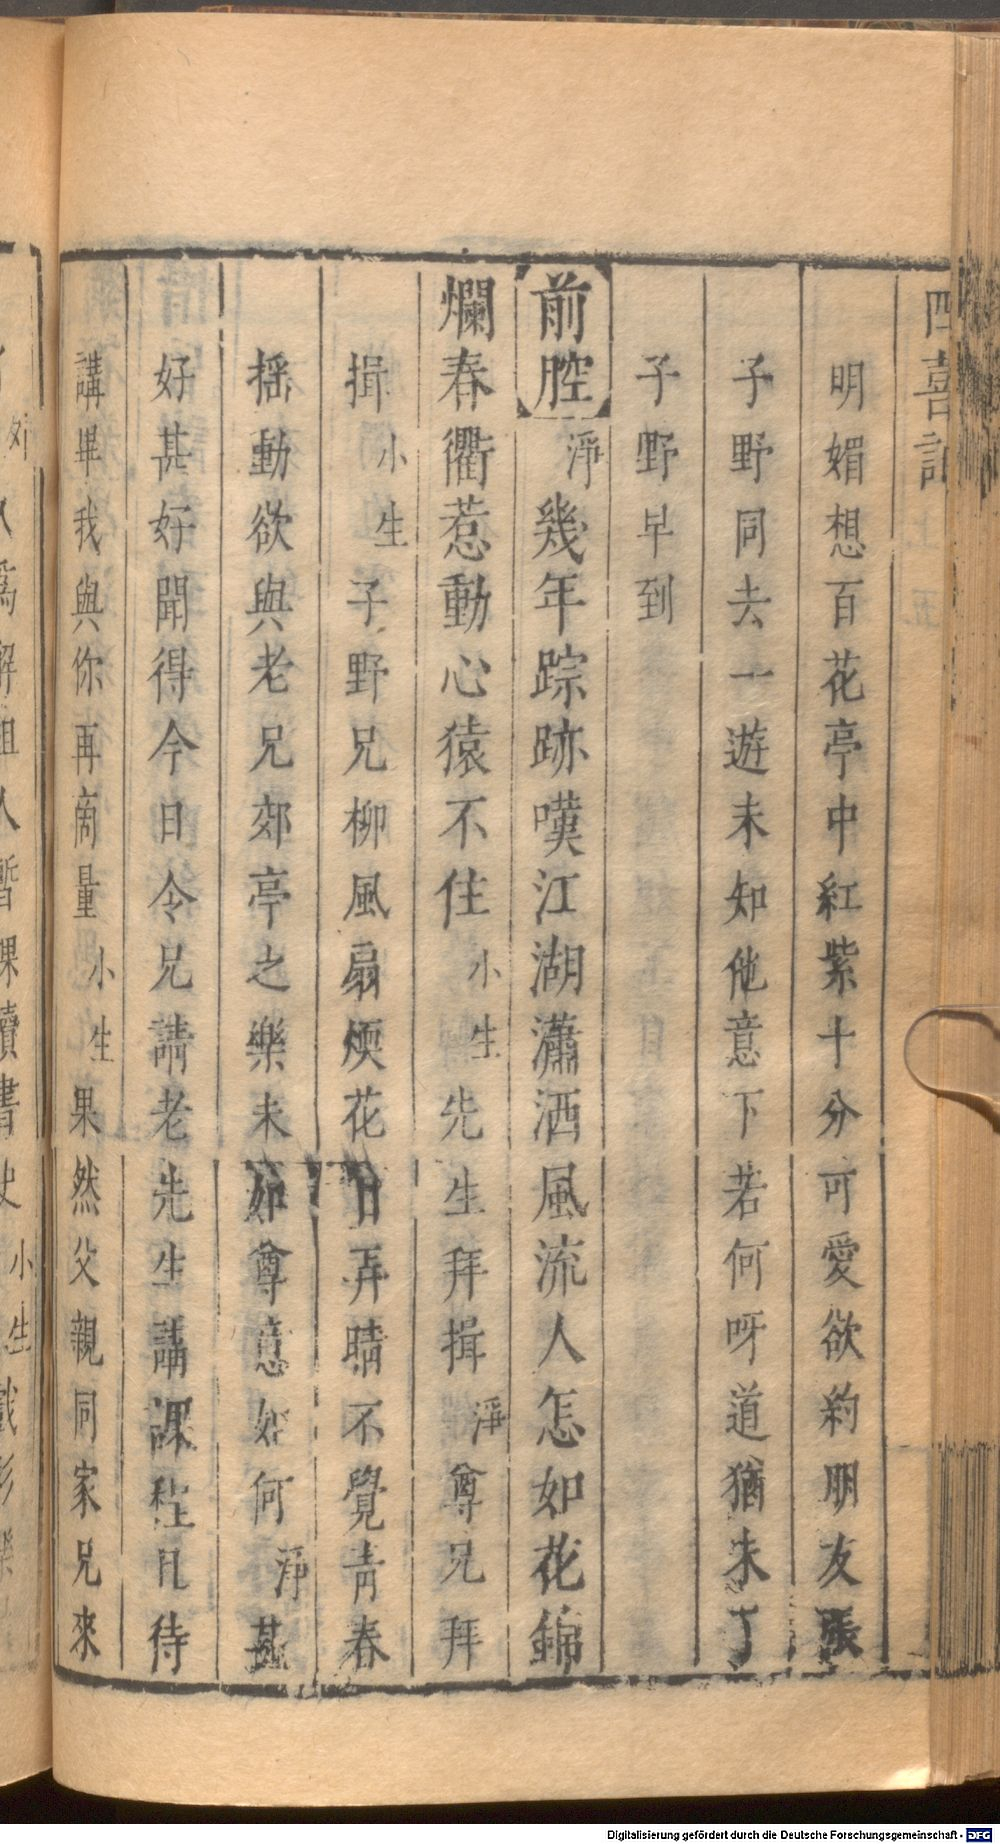 四喜記
上 五
明媚想百花亭中紅紫十分可愛欲約朋友張
子野同去一遊未知他意下若何呀道猶未了
子野早到
前腔 淨 幾年踪跡嘆江湖瀟洒風流人怎如花錦
爛春衢惹動心猿不住 小生 先生拜揖 淨 尊兄拜
揖 小生 子野兄柳風扇煗花日弄晴不覺青春
揺動欲與老兄郊亭之樂未知尊意如何 淨 甚
好甚好聞得今日令兄請老先生講課程且待
講畢我與你再啇量 小生 果然父親同家兄來
Digitalisierung gefördert durch die Deutsche Forschungsgemeinschaft - DFG